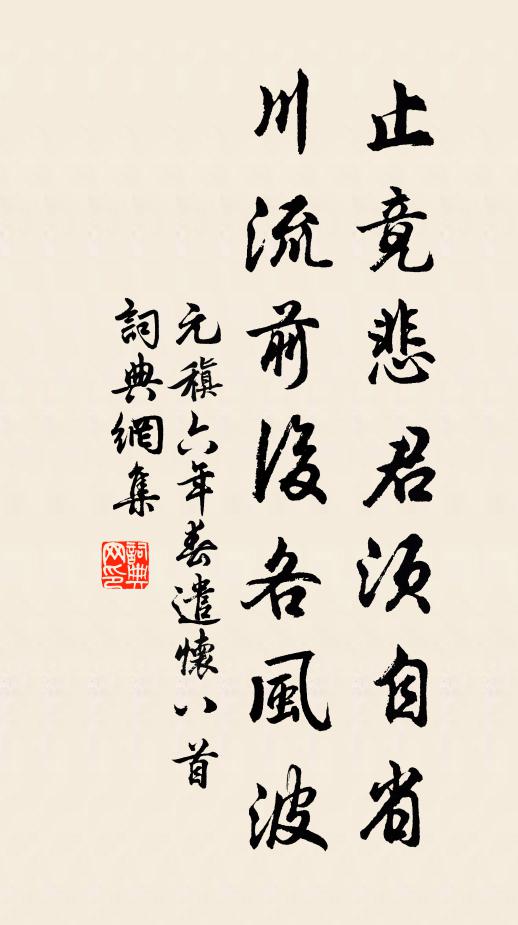 止竟悲君須自省
川流前後各風波
元稹六年春遣懷八首
詞典網集
詞典網印